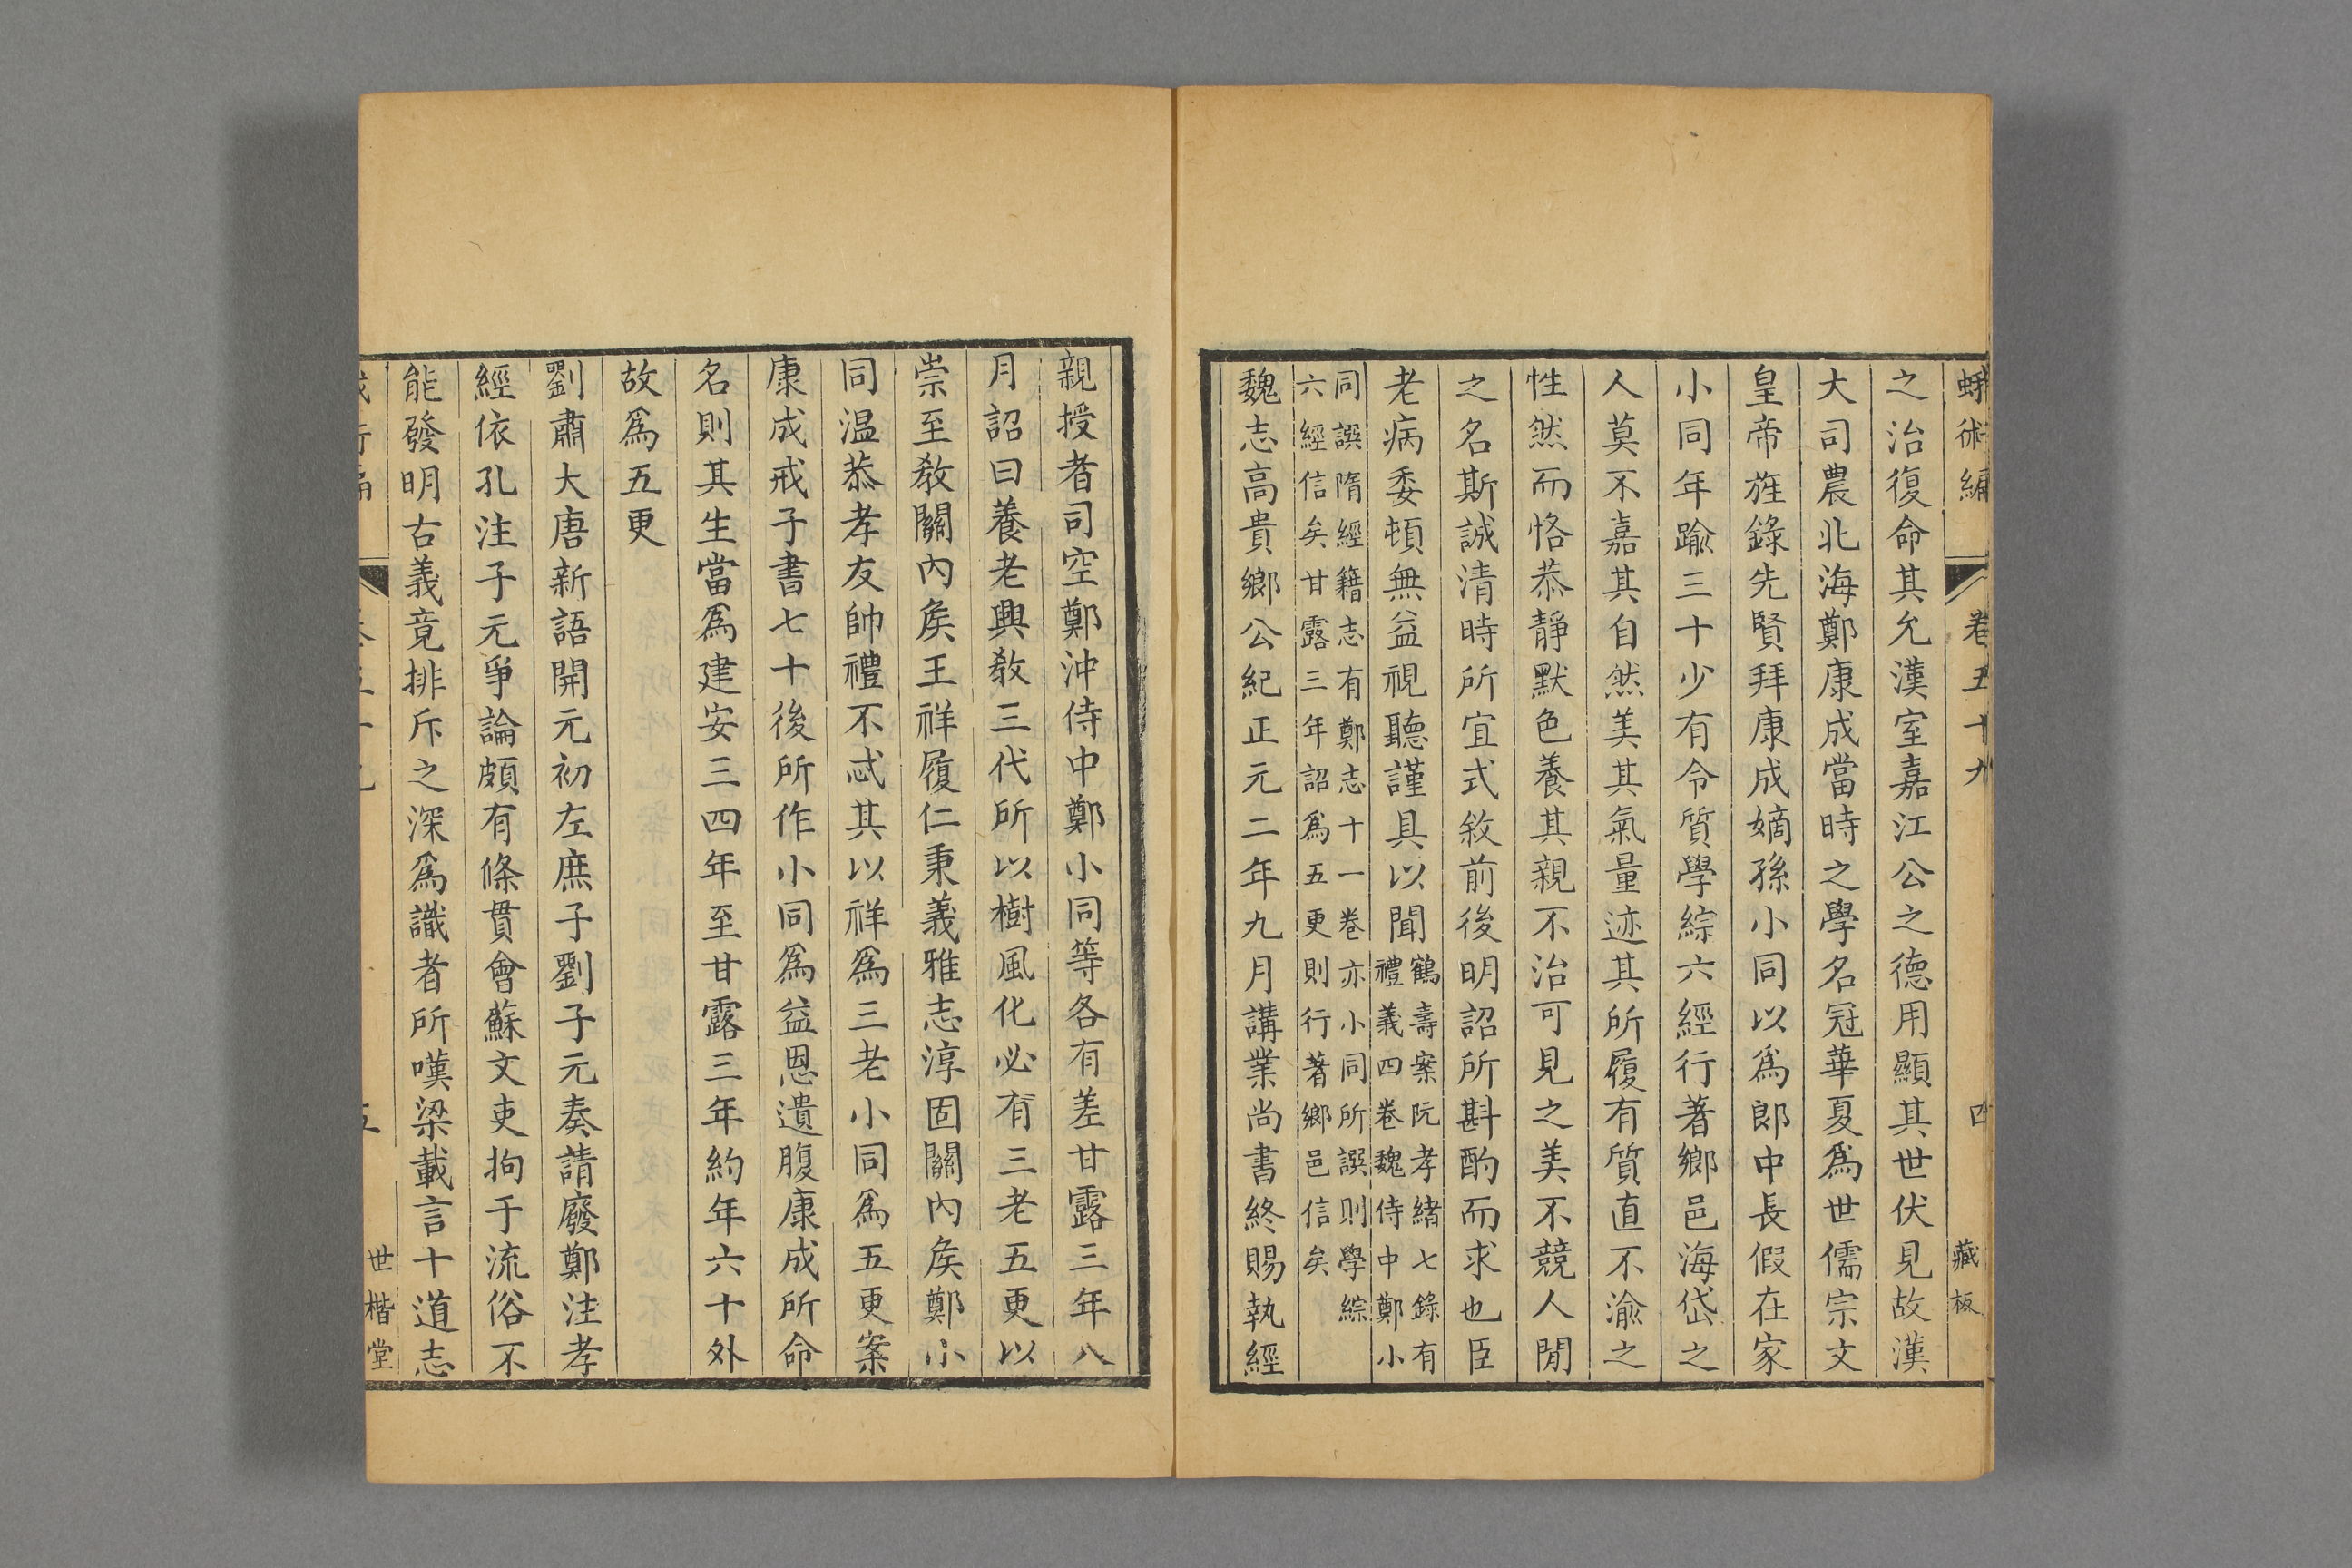 蛾術編 卷五十九 四 藏板
之治復命其允漢室嘉江公之德用顯其世伏見故漢
大司農北海鄭康成當時之學名冠華夏爲世儒宗文
皇帝旌錄先賢拜康成嫡孫小同以爲郎中長假在家
小同年踰三十少有令質學綜六經行著鄉邑海岱之
人莫不嘉其自然美其氣量迹其所履有質直不渝之
性然而恪恭靜默色養其親不治可見之美不競人閒
之名斯誠清時所宜式敘前後明詔所斟酌而求也臣
老病委頓無益視聽謹具以聞
鶴壽案阮孝緒七錄有
禮義四卷魏侍中鄭小
同譔隋經籍志有鄭志十一卷亦小同所譔則學綜
六經信矣甘露三年詔爲五更則行著鄉邑信矣
魏志高貴鄉公紀正元二年九月講業尚書終賜執經
親授者司空鄭沖侍中鄭小同等各有差甘露三年八
月詔曰養老興敎三代所以樹風化必有三老五更以
崇至敎關內矦王祥履仁秉義雅志淳固關內矦鄭小
同温恭孝友帥禮不忒其以祥爲三老小同爲五更案
康成戒子書七十後所作小同爲益恩遺腹康成所命
名則其生當爲建安三四年至甘露三年約年六十外
故爲五更
劉肅大唐新語開元初左庶子劉子元奏請廢鄭注孝
經依孔注子元爭論頗有條貫會蘇文吏拘于流俗不
能發明古義竟排斥之深爲識者所嘆梁載言十道志
五 世楷堂